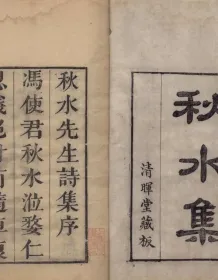 秋水集
清暉堂藏板
秋水先生詩集序
馮使君秋水涖婺仁